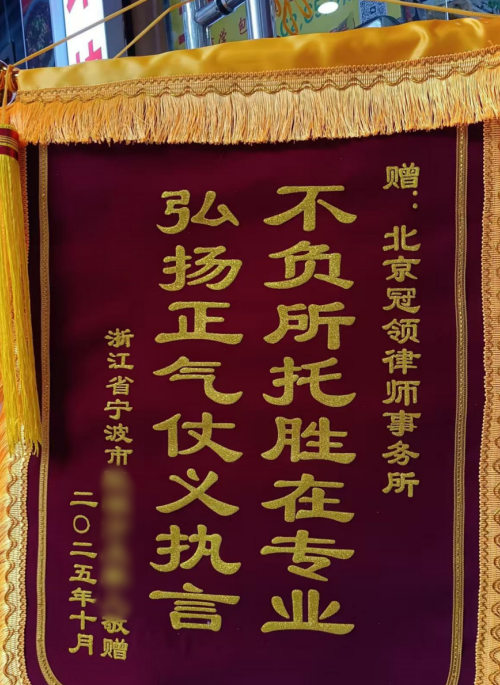 赠：北京冠领律师事务所
不负所托胜在专业
弘扬正气仗义执言
浙江省宁波市
敬赠
二〇二五年十月